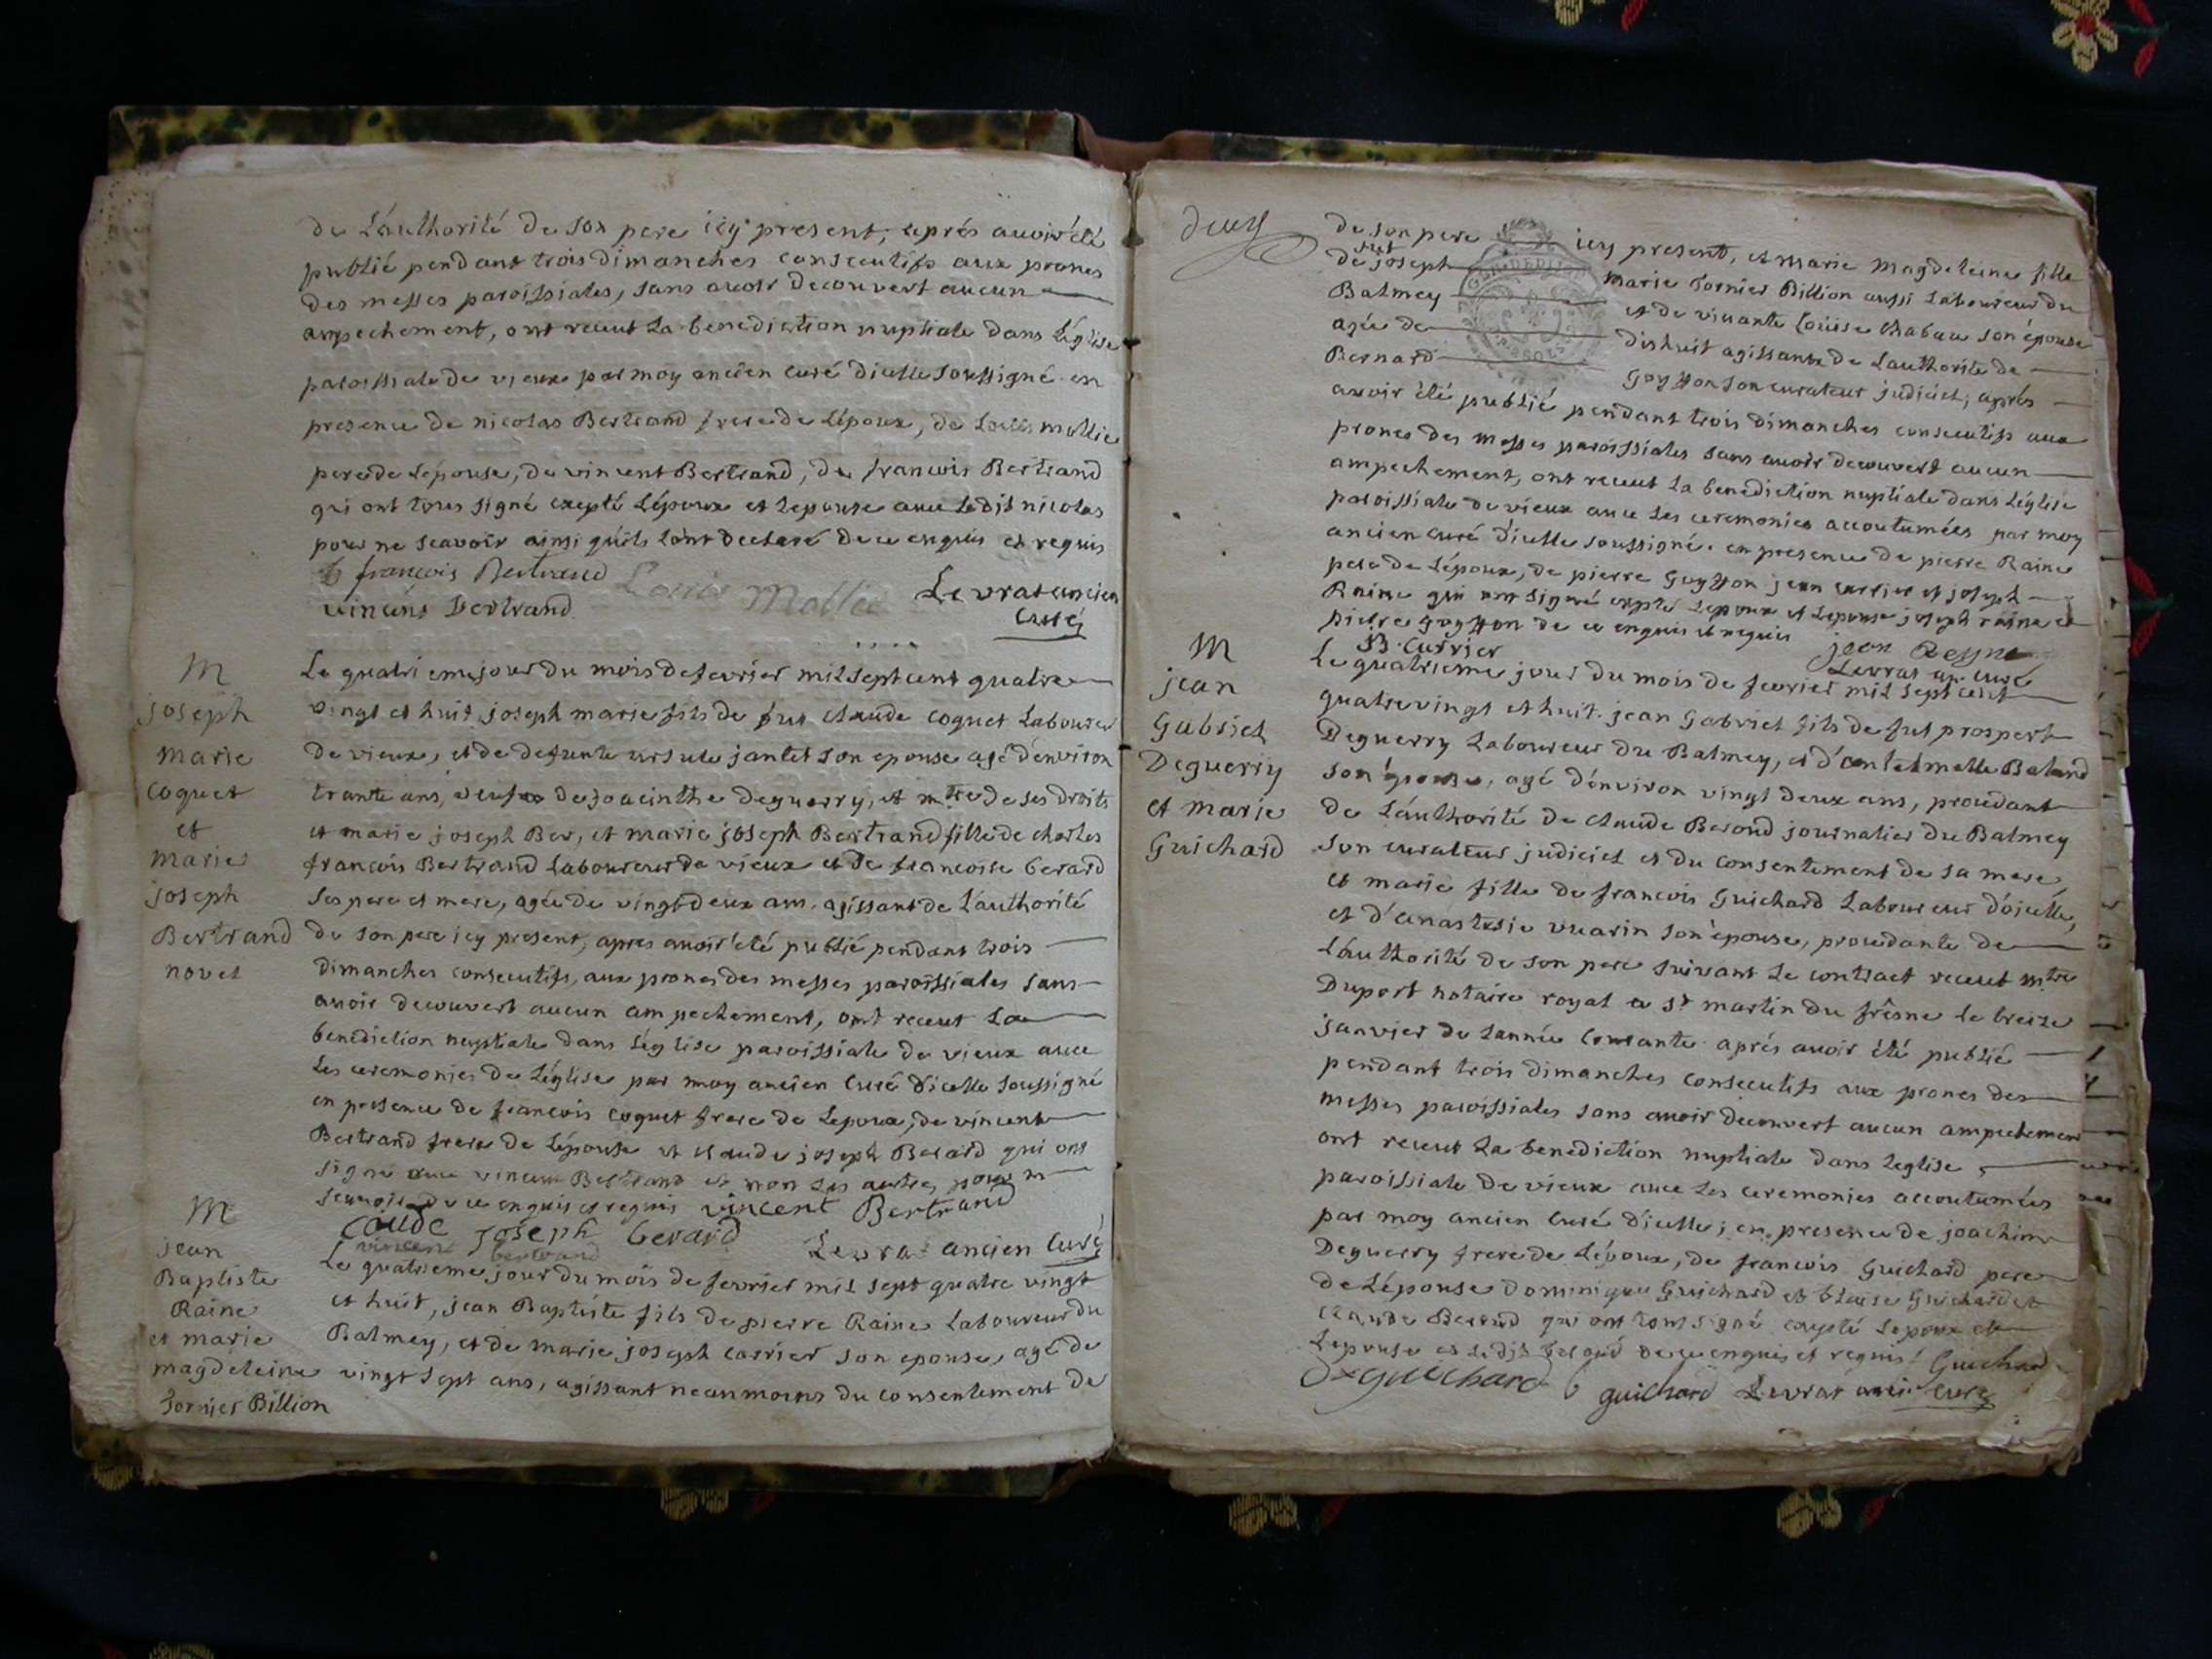 de L'authorité de son pere icy present, aprés avoir été
publié pendant trois dimanches consecutifs aux prones
des messes paroissiales, sans avoir decouvert aucun
ampechement, ont receut La benediction nuptiale dans L'église
paroissiale de vieux par moy ancien curé d'icelle soussigné en
presence de nicolas Bertrand frere de L'époux, de Loüis mollie
pere de L'épouse, de vincent Bertrand, de francois Bertrand
qui ont tous signé excepté L'époux et L'epouse avec Ledit nicolas
pour ne scavoir ainsi qu'ils L'ont declaré de ce enquis et requis
françois Bertrand Louis Mollie Levrat ancien
vincent Bertrand curé
M
joseph
marie
coquet
et
marie
joseph
Bertrand
novel
Le quatriemejour du mois de fevrier mil sept cent quatre
vingt et huit, joseph marie fils de fut claude coquet Laboureur
de vieux, et de defunte ursule jantet son epouse agé d'environ
trante ans, veuf de joacinthe deguerry, et mtre de ses droits
et marie joseph Ber, et marie joseph Bertrand fille de charles
francois Bertrand Laboureur de vieux et de francoise berard
ses pere et mere, agée de vingt deux ans, agissant de L'authorité
de son pere icy present, apres avoir été publié pendant trois
dimanches consecutifs, aux prones des messes paroissiales sans
avoir decouvert aucun ampechement, ont receut La
benediction nuptiale dans L'église paroissiale de vieux avec
Les ceremonies de L'église par moy ancien curé d'icelle soussigné
en presence de francois coquet frere de L'epoux, de vincent
Bertrand frere de L'épouse et claude joseph Berard qui ont
signé avec vincent Bertrand et non Les autres pour ne
scavoir de ce enquis et requis vincent Bertrand
Caude joseph berard Levrat ancien curé
vincent bertrand
M
jean
Baptiste
Raine
et marie
magdeleine
Tornier Billion
Le quatrieme jour du mois de fevrier mil sept quatre vingt
et huit, jean Baptiste fils de pierre Raine Laboureur du
Balmey, et de marie joseph carrier son epouse, agé de
vingt sept ans, agissant neanmoins du consentement de
deux
de son pere icy present, et marie magdeleine fille
de fut joseph marie Tornier Billion aussi Laboureur du
Balmey et de vivante Loüise chabaue son épouse
agée de dishuit agissante de L'authorité de
Bernard Goyffon son curateur judiciel, aprés
avoir été publié pendant trois dimanches consecutifs aux
prones des messes paroissiales sans avoir decouvert aucun
ampechement, ont receut La benediction nuptiale dans L'église
paroissiale de vieux avec Les ceremonies accoutumées par moy
ancien curé d'icelle soussigné. en presence de pierre Raine
pere de L'époux, de pierre Goyffon jean carrier et joseph
Raine qui ont signé excepté L'epoux et L'epouse joseph raine et
pierre goyffon de ce enquis et requis
B. Currier jean Reyne
Levrat an. curé
M
jean
Gabriel
Deguerry
et marie
Guichard
Le quatrieme jour du mois de fevrier mil sept cent
quatre vingt et huit. jean Gabriel fils de fut prospert
Deguerry Laboureur du Balmey, et d'anthelmette Baland
son épouse, agé d'environ vingt deux ans, procedant
de L'authorité de claude Berond journalier du Balmey
son curateur judiciel et du consentement de sa mere,
et marie fille de francois Guichard Laboureur d'ojcelle,
et d'anastesie vuarin son épouse, procedante de
L'authorité de son pere suivant Le contract receut mtre
Duport notaire royal a st martin du frêsne Le treize
janvier de L'année Courante aprés avoir été publié
pendant trois dimanches consecutifs aux prones des
messes paroissiales sans avoir decouvert aucun ampechement
ont receut La benediction nuptiale dans L'eglise
paroissiale de vieux avec Les ceremonies accoutumées
par moy ancien curé d'icelle; en presence de joachim
Deguerry frere de L'époux, de francois Guichard pere
de L'épouse dominique Guichard et blaise Guichard et
claude Berond qui ont tout signé excepté L'epoux et
L'epouse et Ledit Berond de ce enquis et requis. Guichard
guichard guichard Levrat ancien curé